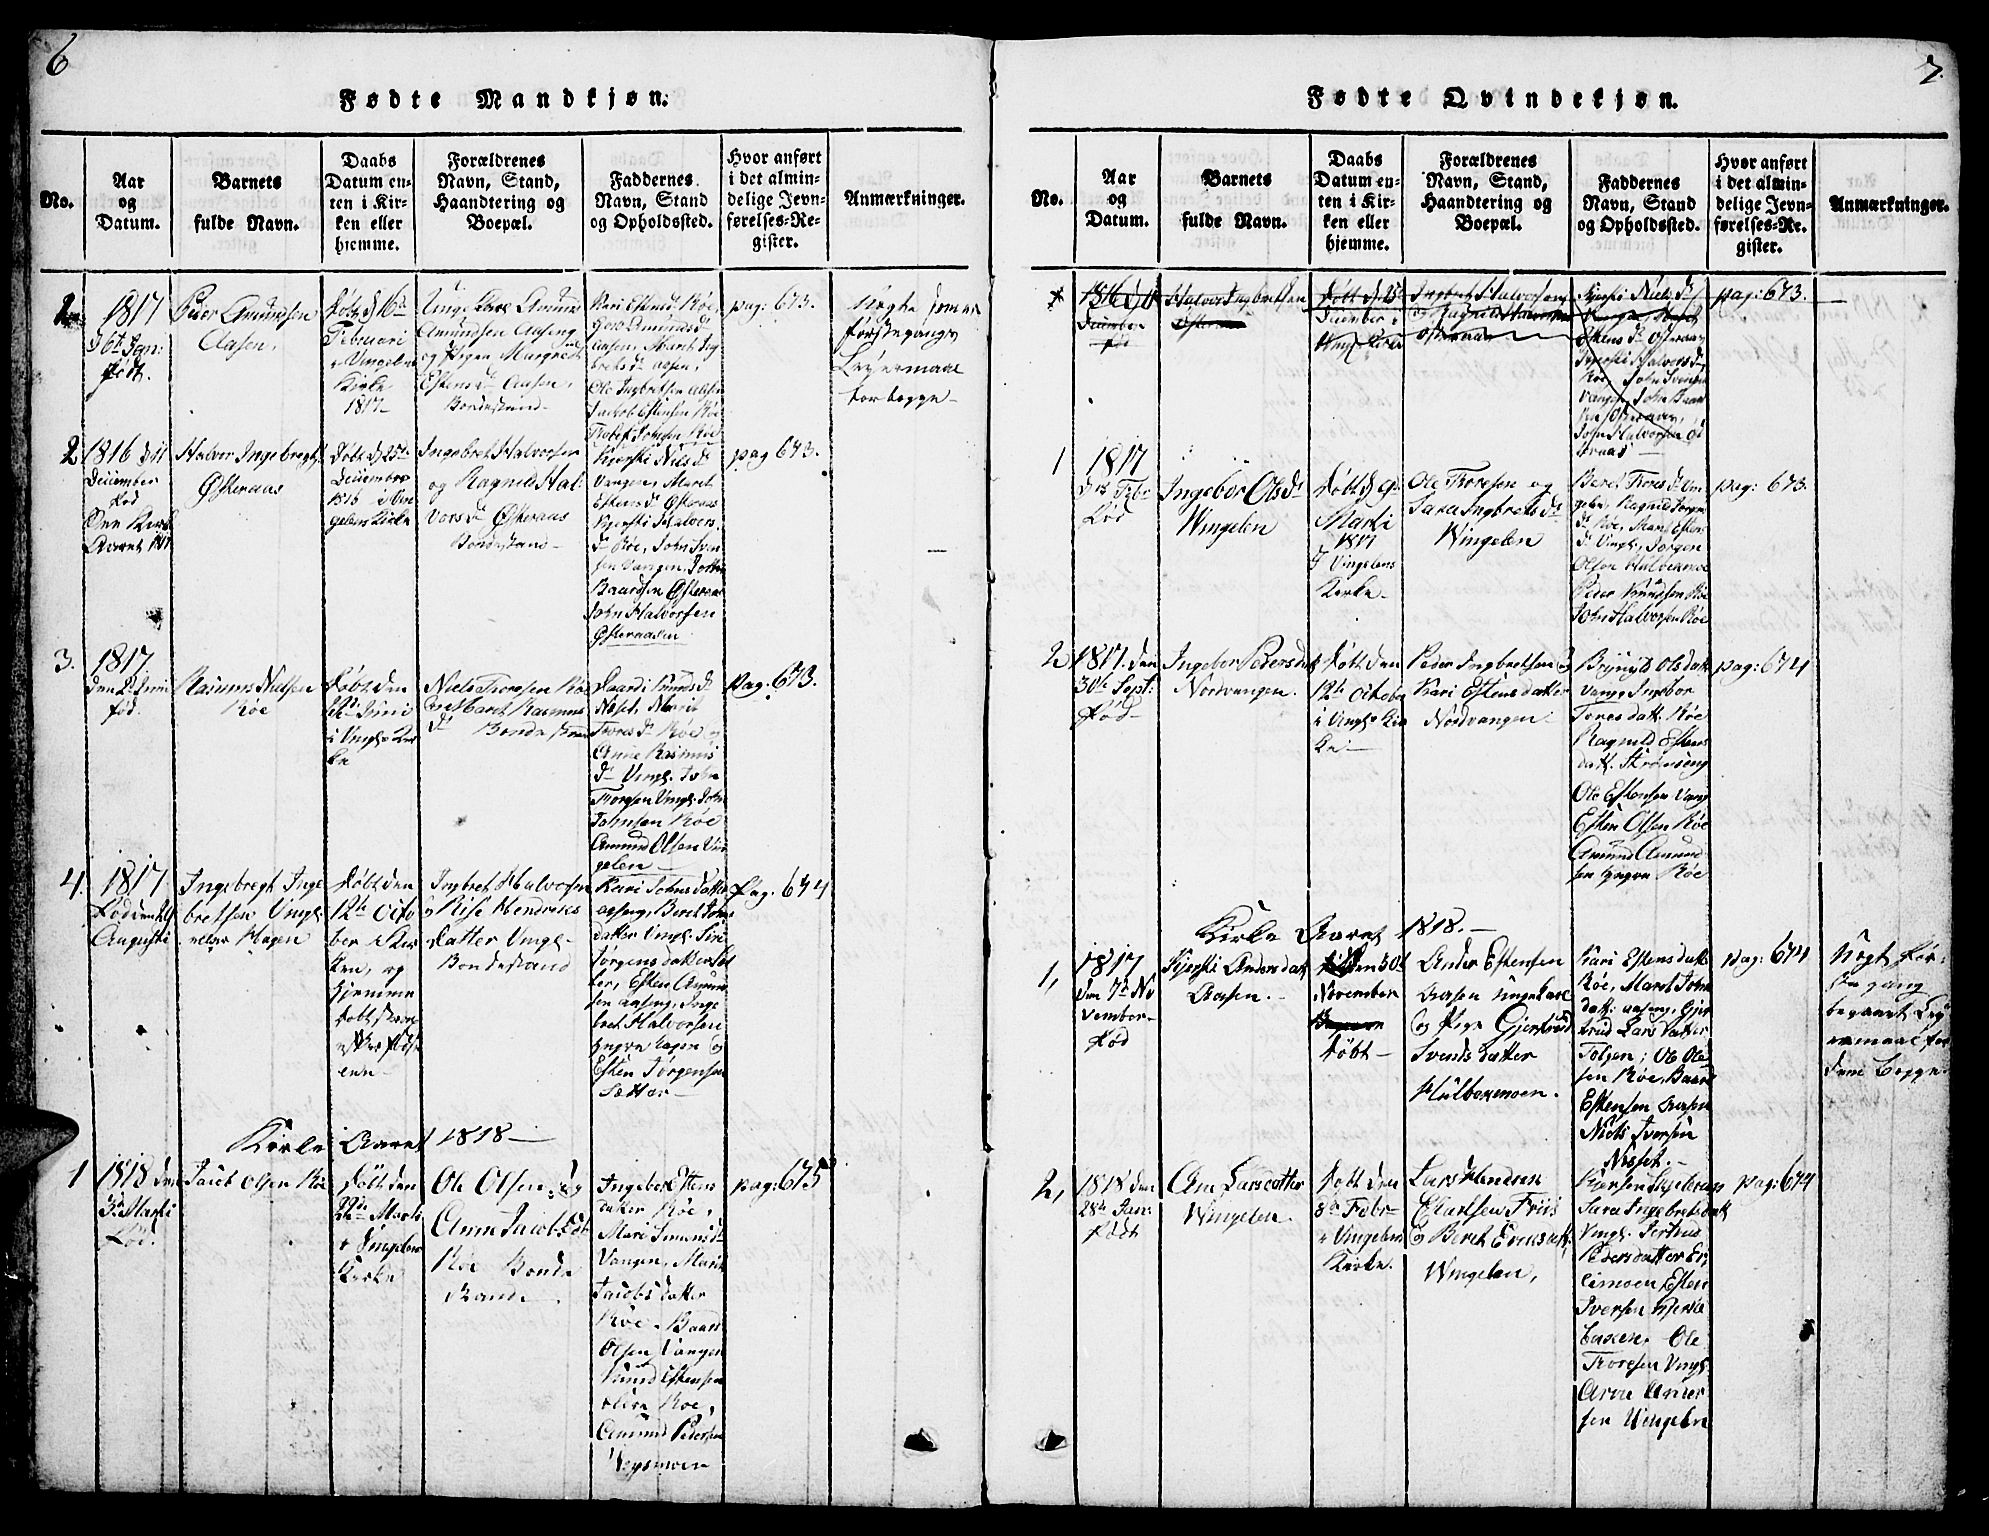 6
Fødte Mandkjøn.
No.
Aar
og
Datum.
Barnets
fulde Navn.
Daabs
Datum en-
ten i Kir-
ken eller
hjemme.
Forældrenes
Navn, Stand,
Haandtering og
Boepæl.
Faddernes
Navn, Stand
og Opholdssted.
Hvor anført
i det almin-
delige Jevn-
førelses-Re-
gister.
Anmærkninger.
1817
d 6te Jan:
født.
Peder Amundsen
Aasen.
Døbt d 16de
Februari
i Vingelens
Kirke
1817
Unge Karl Amund
Amundsen Aaseng
og Pigen Margrete
Estensdr Aasen,
Bondestand
pag: 673.
førstegangs
Leiermaal
for begge
2
1816 d 11
December
fød
Halvor Ingebregts.
Østeraas
Døbt d 25de
December
1816 i Vin
gelen Kirke
Ingebret Halvorsen
og Ragnild Hal-
vorsdr Østeraas
Bondestand
Kiersti Nielsdr
Vangen, Maret
Estensdr Østeraas
Kiersti Halvors
dr Røe, John Sven
sen Vangen, John
Baardsen Østeraas
John Halvorsen
Østeraasen
pag 673.
3.
1817.
fød.
Rasmus Nielsen
Røe
Døbt den
i Vingl. Kir
ke
Niels Toresen Røe
og Maret Rasmus
dr Bonde
Toresdr Røe og
Anne Rasmus
dr Vingl. John
Toresen Vingl. John
Johnsen Røe
Amund Olsen Vin
gelen
pag. 673.
4.
1817
Augusti
Ingebregt Inge
bretsen Vingl.
eller Hagen
Døbt den
12te Octo
ber i Kir
ken, og
hjemme
døbt
Ingbret Halvorsen
og Rise Hendriks
datter Vingl.
Bondestand
Kari Johnsdatter
Aaseng, Beret Johns
datter Vingl. Siri
Jørgensdatter Sæt
ter, Esten Amund
sen Aaseng, Inge
bret Halvorsen
Yngre Hagen og
Esten Jørgensen
Sætter
pag. 674
Kirke Aaret 1818
1
1818 den
3de Marti
fød.
Jacob Olsen Røe
Døbt den
22de Marti
i Vingelens
Kirke
Ole Olsen og
Anne Jacobsdr
Røe Bonde
Stand
Ingebor Estens
datter Røe,
Mari Simensdr
Vangen, Marit
Jacobsdatter
Røe, Baard
Olsen Vangen
Knud Estensen
Røe,
Amund Pedersen
Nysmoen
pag: 675
7.
Fødte Qvindekjøn.
No.
Aar
og
Datum.
Barnets
fulde Navn.
Daabs
Datum en-
ten i Kir-
ken eller
hjemme.
Forældrenes
Navn, Stand,
Haandtering og
Boepæl.
Faddernes
Navn, Stand
og Opholdssted.
Hvor anført
i det almin-
delige Jevn-
førelses-Re-
gister.
Anmærkninger.
December
Halvor Ingbretsen
Døbt d. 25de
December i
Vingl. Kirke
Ingbret Halvorsen
Østeraas
Kjersti Nielsdr
Estensdr Østeraas
Kjersti Halvorsdr
Røe, John Svensen
Vangen, John Baard
sen Østeraas,
John Halvorsen Øs
teraas
pag: 673.
1
1817
Fød
Ingebor Olsdr
Wingelen
Døbt d 9de
Marti
1817
I Vingelens
Kirke
Ole Toresen og
Sara Ingbretsdr
Wingelen
Beret Toresdr Vin
gelen, Ragnild Jørgens
dr Røe, Maret Estens
dr Vingl., Jørgen
Olsen Hulbekmoe
Peder Knudsen Røe
John Halvorsen Røe
pag: 673.
2
1817. den
30te Sept:
Fød
Ingebor Pedersdatt
Nordvangen.
Døbt den
12te October
i Vingl. Kir
ke.
Peder Ingbretsen og
Kari Estensdatter
Nordvangen
Brynild Olsdatt.
Vang, Ingebor
Toresdatt. Røe
Ragnild Estens
datt. Strømseng
Ole Estensen Vang
Esten Olsen Røe
Amund Amund
sen Yngre Røe
pag: 674
Kirke Aaret 1818.
1,
1817
den 7de No
vember
Fød
Kjersti Andersdatt
Aasen.
den 30te
November
Døbt
Anders Estensen
Aasen Ungekarl
og Pige Gjertrud
Svendsdatter
Hulbekmoen.
Kari Estensdatt
Røe, Maret John
datt. Aaseng, Gjer
trud Larsdatter
Tolgen, Ole Ole
sen Røe, Baard
Estensen Aasen
Niels Iversen
Nesset.
pag: 674
2,
1818 den
28de Jan:
Født
Ane Larsdatter
Wingelen.
Døbt den
8de Febr
i Vingelens
Kirke.
Lars Hendrik
Friis
og Beret Ericsdatt.
Wingelen,
Sara Ingebretsdatt
Vingl. Jertrud
Pedersdatter
Esten
Iversen
Ole
Toresen Vingl.
Arne Ander
sen Vingelen
pag: 674